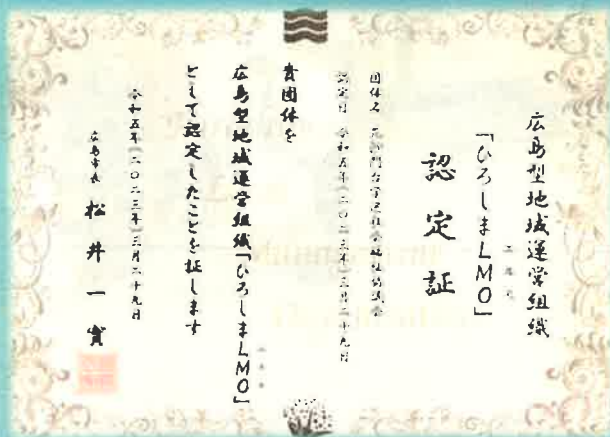 広島型地域運営組織
「ひろしまLMO」
エルモ
認定証
団体名
認定日 令和五年(二〇二三年)三月二十九日
貴団体を
広島型地域運営組織「ひろしまLMO」
エルモ
として認定したことを証します
令和五年(二〇二三年)三月二十九日
広島市長 松井一實